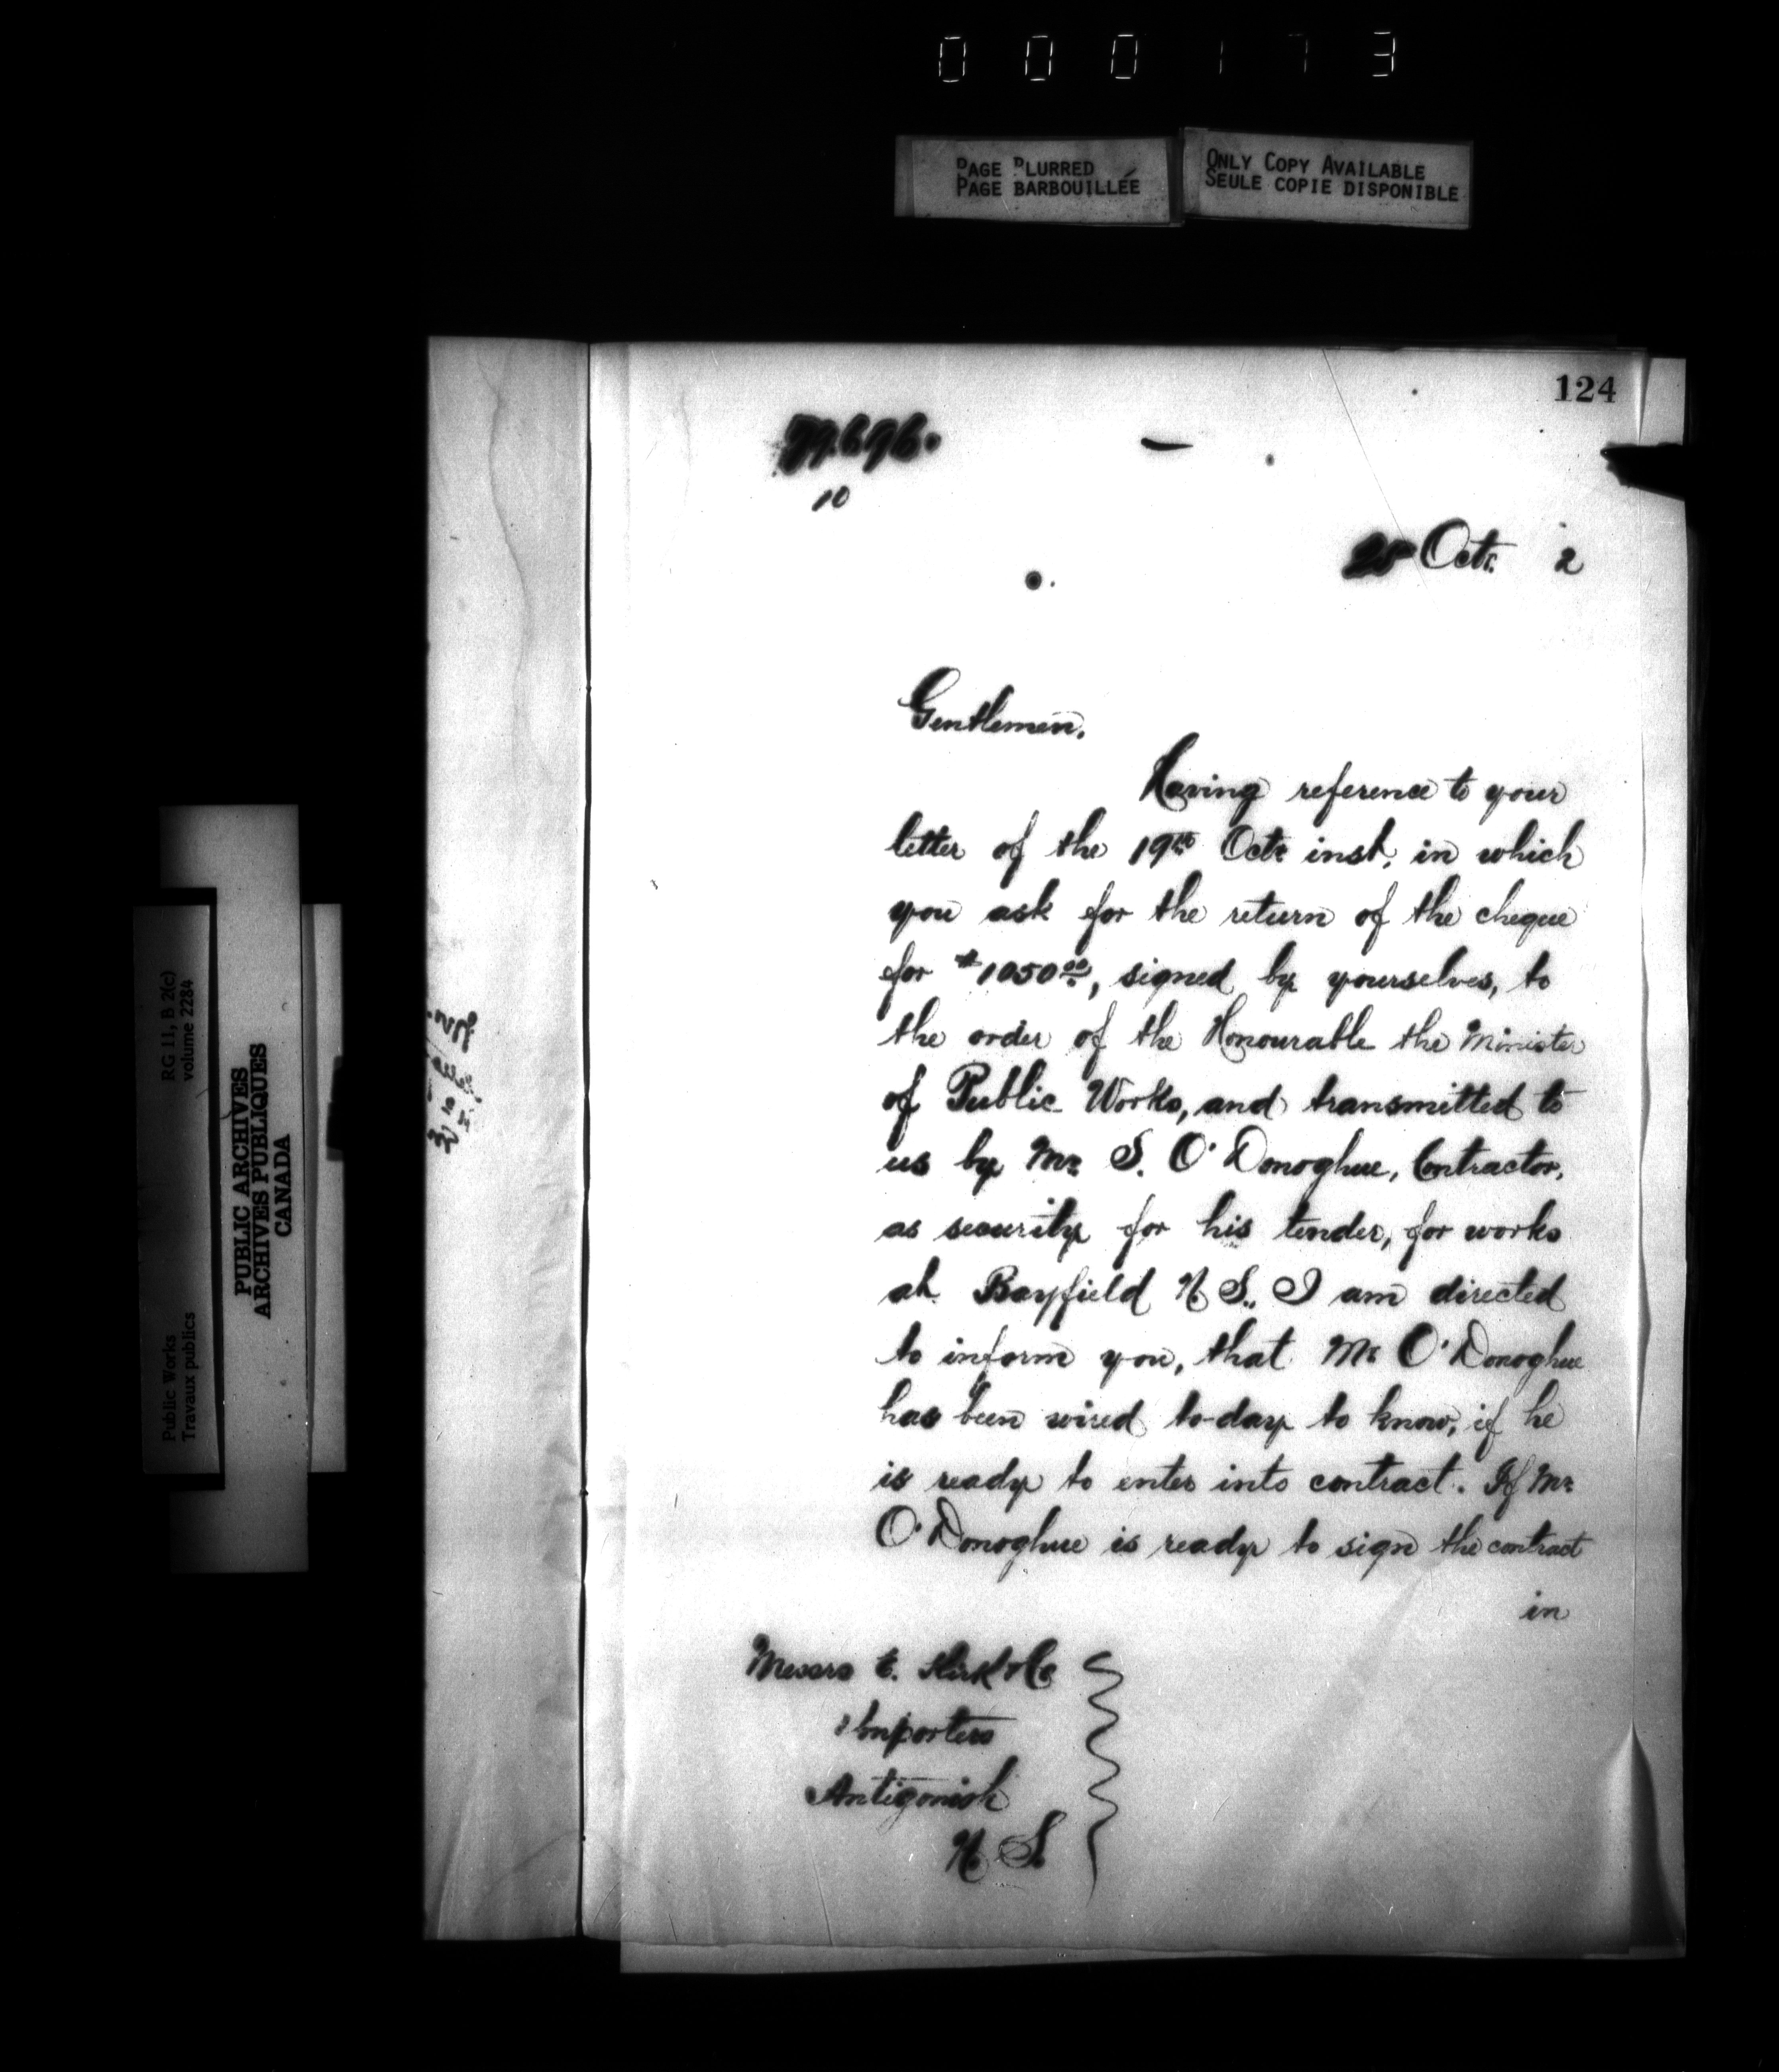 000173
PAGE BLURRED
PAGE BARBOUILLÉE
ONLY COPY AVAILABLE
SEULE COPIE DISPONIBLE
124
10
Octr. 2
Gentlemen,
Having reference to your
letter of the 19th Octr inst, in which
you ask for the return of the cheque
for $1050 00, signed by yourselves, to
the order of the Honourable the Minister
of Public Works, and transmitted to
us by Mr S. O'Donoghue, Contractor,
as security for his tender, for works
at Bayfield N. S., I am directed
to inform you, that Mr O'Donoghue
has been wired to-day to know, if he
is ready to enter into contract. If Mr
O'Donoghue is ready to sign the contract
in
Messrs Kirk & Co
Importers
Antigonish
N. S.
Public Works
Travaux publics
RG 11, B 2(c)
volume 2284
PUBLIC ARCHIVES
ARCHIVES PUBLIQUES
CANADA